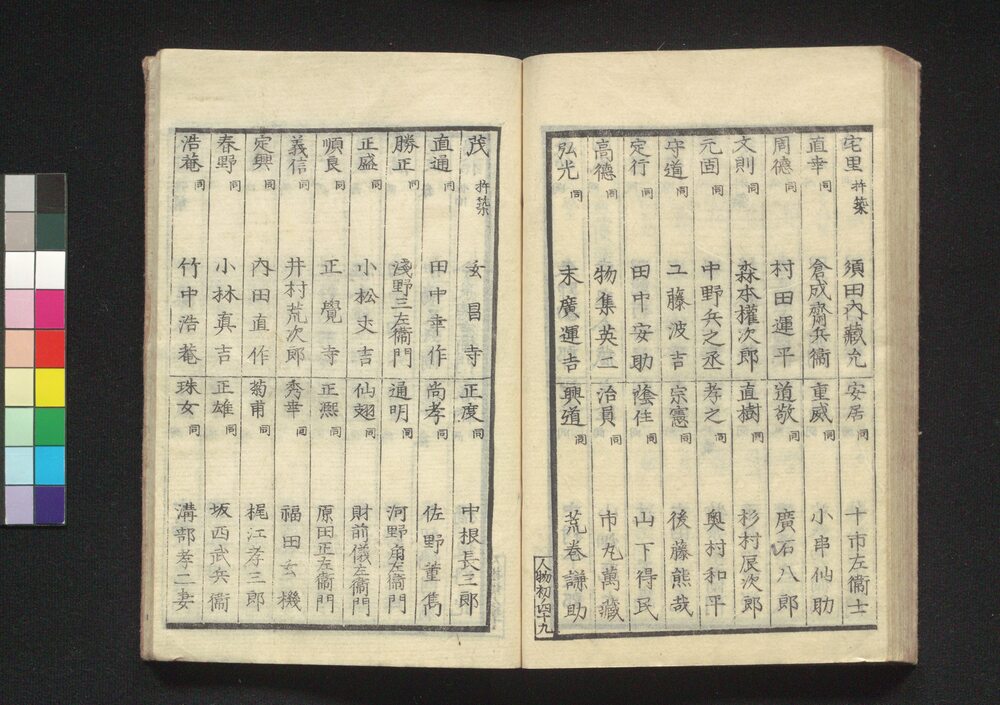 宅里 杵築 須田内藏允
直幸 同 倉成齋兵衞
周德 同 村田運平
文則 同 森本權次郎
元固 同 中野兵之丞
守道 同 工藤波吉
定行 同 田中安助
高德 同 物集英二
弘光 同 末廣運吉
安居 同 十市左衞士
重威 同 小串仙助
道敬 同 廣石八郎
直樹 同 杉村辰次郎
孝之 同 奥村和平
宗憲 同 後藤熊哉
蔭任 同 山下得民
治員 同 市丸萬藏
興道 同 荒卷謙助
人物初ノ四十九
茂 杵築 玄昌寺
直通 同 田中幸作
勝正 同 淺野三左衞門
正盛 同 小松丈吉
順良 同 正覺寺
義信 同 井村荒次郎
定興 同 内田直作
春野 同 小林真吉
浩菴 同 竹中浩菴
正度 同 中根長三郎
尚孝 同 佐野董雋
通明 同 河野角左衞門
仙翅 同 財前儀左衞門
正凞 同 原田正左衞門
秀幸 同 福田玄機
菊甫 同 梶江孝三郎
正雄 同 坂西武兵衞
珠女 同 溝部孝二妻